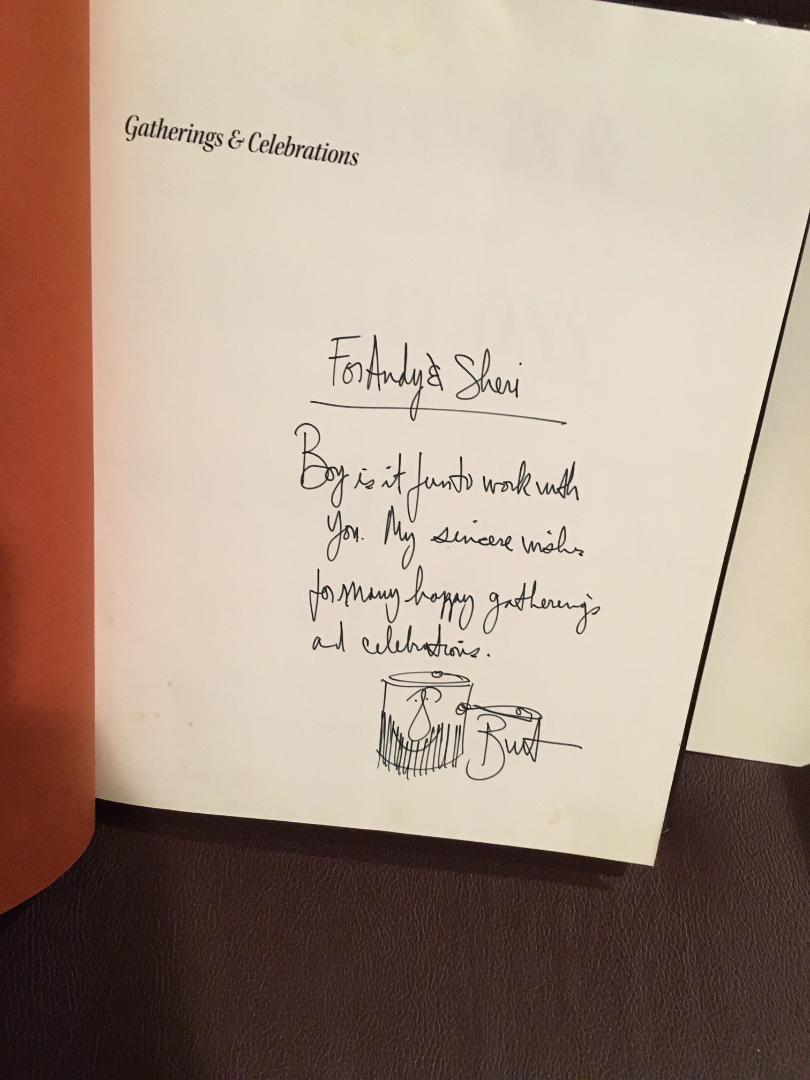 Gatherings & Celebrations
For Andy & Sheri
Boy is it fun to work with
you. My sincere wishes
for many happy gatherings
and celebrations.
Burt